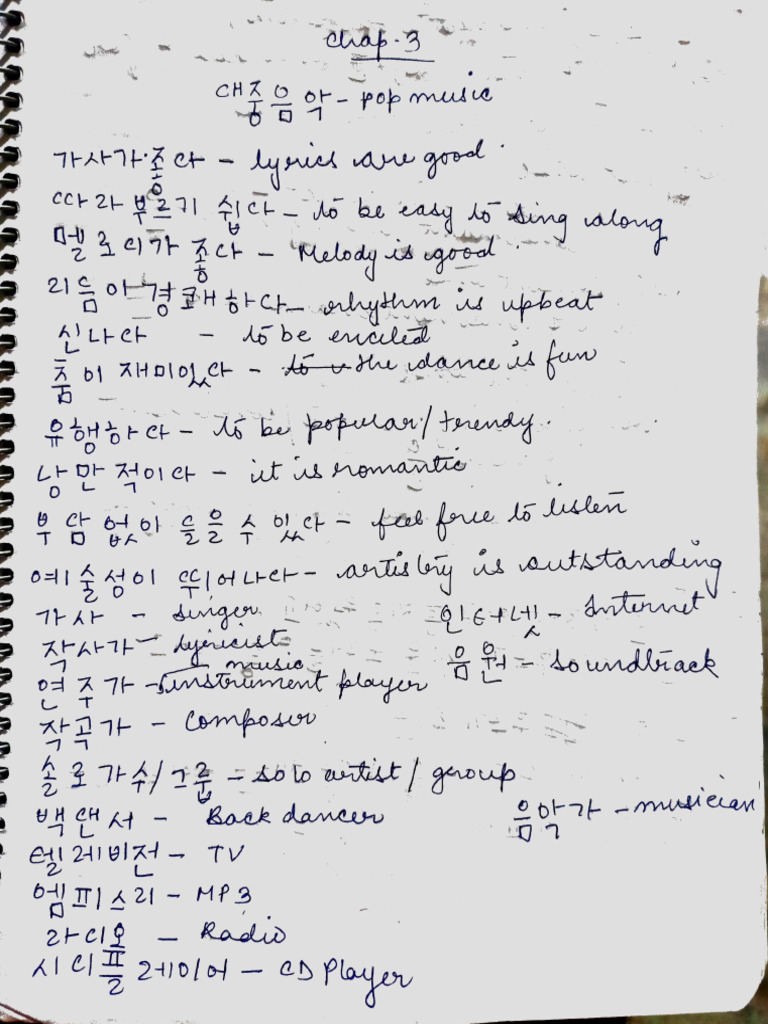 Chap. 3
대중음악 - pop music
가사가 좋다 - lyrics are good.
따라 부르기 쉽다 - to be easy to sing along
멜로디가 좋다 - Melody is good.
리듬아 경쾌하다 - rhythm is upbeat
신나다 - to be excited
춤이 재미있다 - the dance is fun
유행하다 - to be popular/trendy.
낭만적이다 - it is romantic
부담없이 들을 수 있다 - feel free to listen
예술성이 뛰어나다 - artistry is outstanding
가사 - singer
인터넷 - Internet
작사가 - lyricist
음원 - soundtrack
연주가 - music instrument player
작곡가 - composer
솔로가수/그룹 - solo artist/group
백댄서 - Back dancer
음악가 - musician
텔레비전 - TV
엠피스리 - MP3
라디오 - Radio
시디플레이어 - CD Player